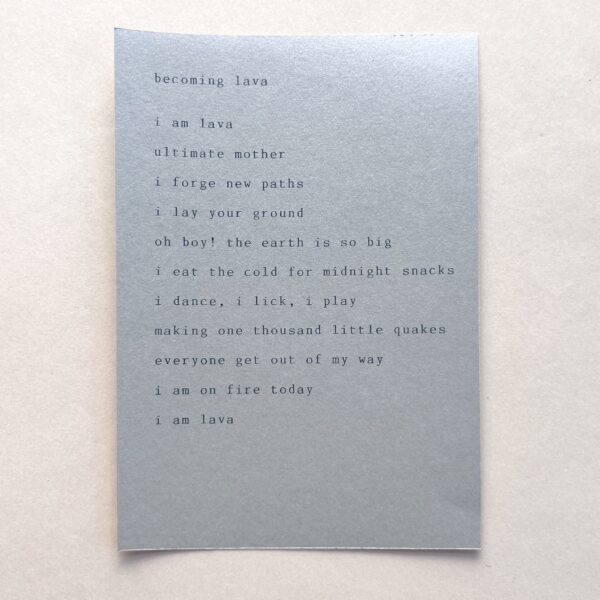 becoming lava
i am lava
ultimate mother
i forge new paths
i lay your ground
oh boy! the earth is so big
i eat the cold for midnight snacks
i dance, i lick, i play
making one thousand little quakes
everyone get out of my way
i am on fire today
i am lava